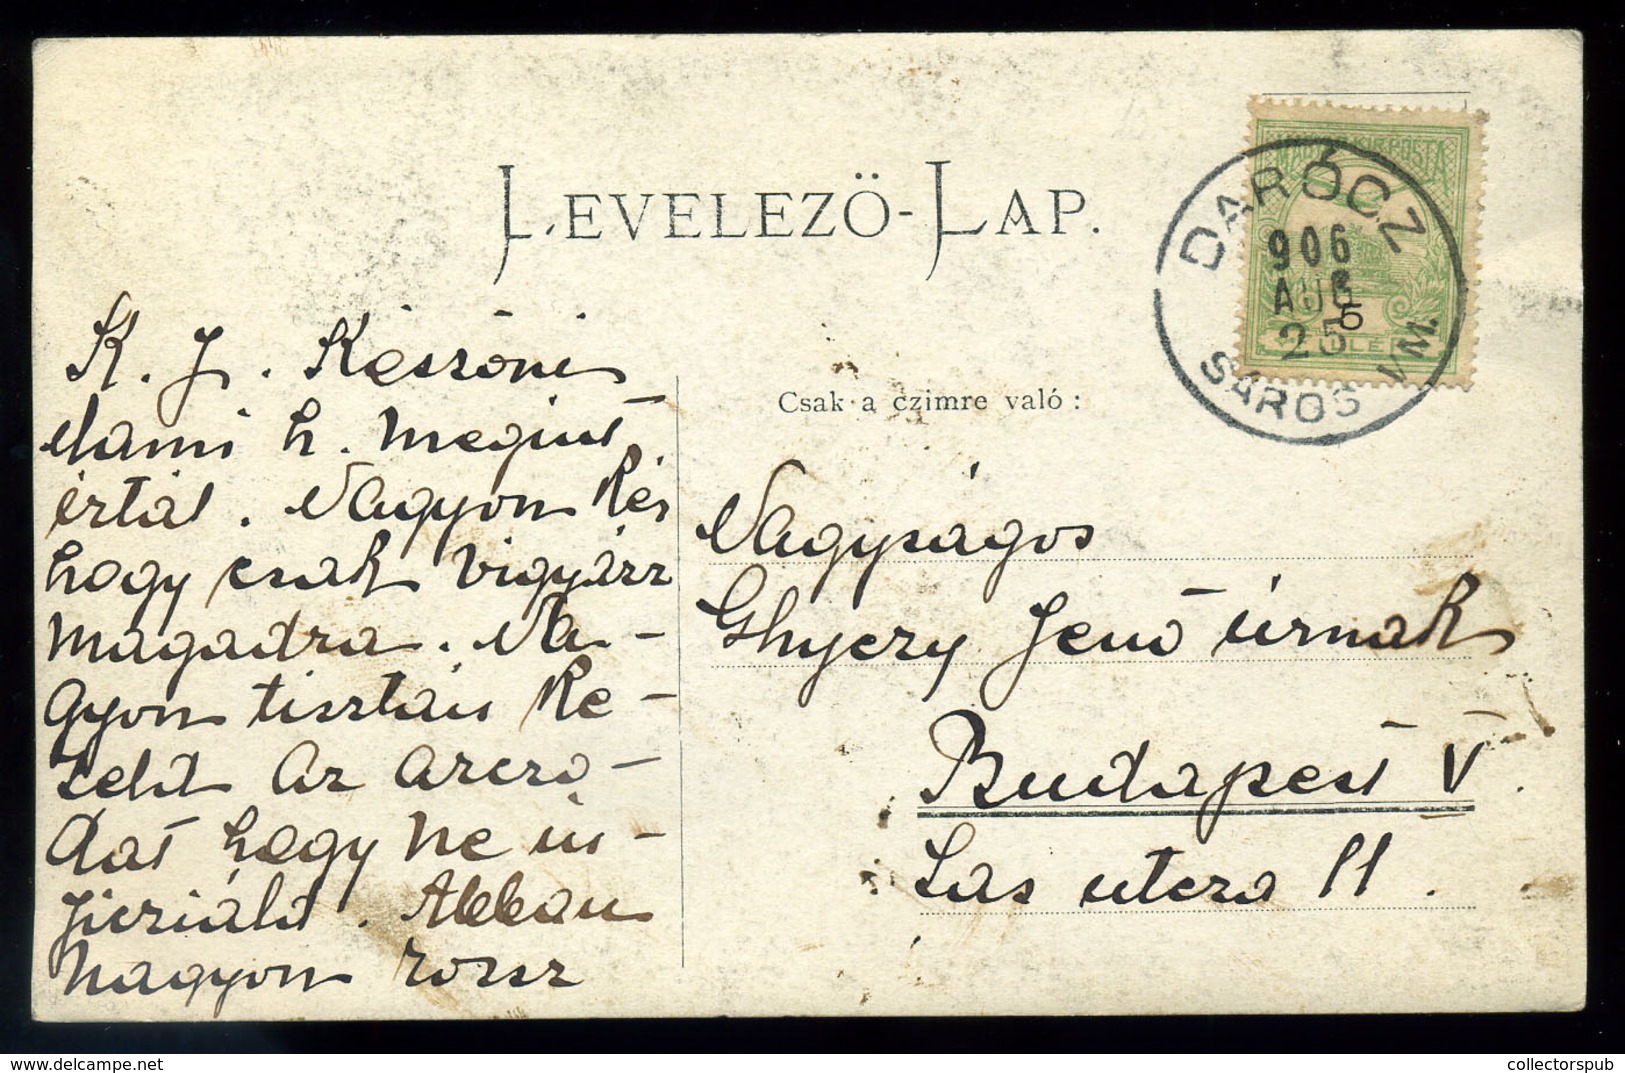 LEVELEZŐ-LAP.
MAGYAR KIR. POSTA
DARÓCZ
906
AUG
25
5
SÁROS VM.
Csak a czimre való:
K. J. Köszöni
h. megint
írtál. Nagyon kér
hogy csak vigyázz
magadra. Na-
gyon tisztán ke-
zeld az arczo-
dat hogy ne in-
ficziáld. Abban
nagyon rossz
Nagyságos
Ghyczy Jenő úrnak
Budapest V.
Sas utcza 11.
collectorspub